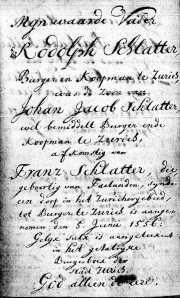 Mijn waarde Vader
Rodolph Schlatter
Burger en Koopman te Zurich,
was de Zoon van
Johan Jacob Schlatter,
wel bemiddelt Burger ende
Koopman te Zurich,
afkomstig van
Franz Schlatter, die
geboortig van Fallanden, zynde
een dorp in het Zurichergebied,
tot Burger te Zurich is aangenomen
den 5. Junii 1556.
Gelijk zulx is aangetekent
in het
Burgerboek der
stad Zurich.
God alleen de eere.